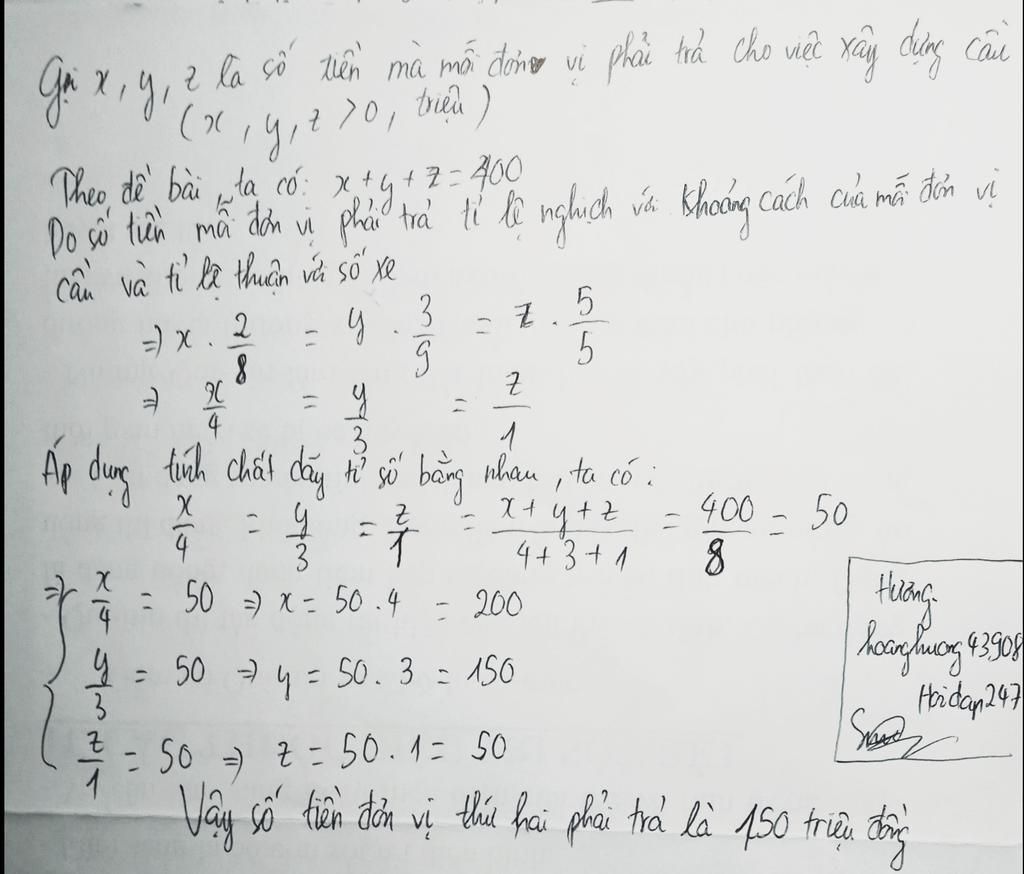 Gọi x, y, z là số tiền mà mỗi đơn vị phải trả cho việc xây dựng cầu
(x, y, z >0, triệu)
Theo đề bài, ta có: x+y+z=400
Do số tiền mỗi đơn vị phải trả tỉ lệ nghịch với khoảng cách của mỗi đơn vị
cầu và tỉ lệ thuận với số xe
⇒ x . 2/8 = y . 3/9 = z . 5/5
⇒ x/4 = y/3 = z/1
Áp dụng tính chất dãy tỉ số bằng nhau, ta có:
x/4 = y/3 = z/1 = x+y+z/4+3+1 = 400/8 = 50
⇒ x/4 = 50 ⇒ x = 50.4 = 200
y/3 = 50 ⇒ y = 50.3 = 150
z/1 = 50 ⇒ z = 50.1 = 50
Vậy số tiền đơn vị thứ hai phải trả là 150 triệu đồng
Hương.
hoanghuong43908
Hoidap247